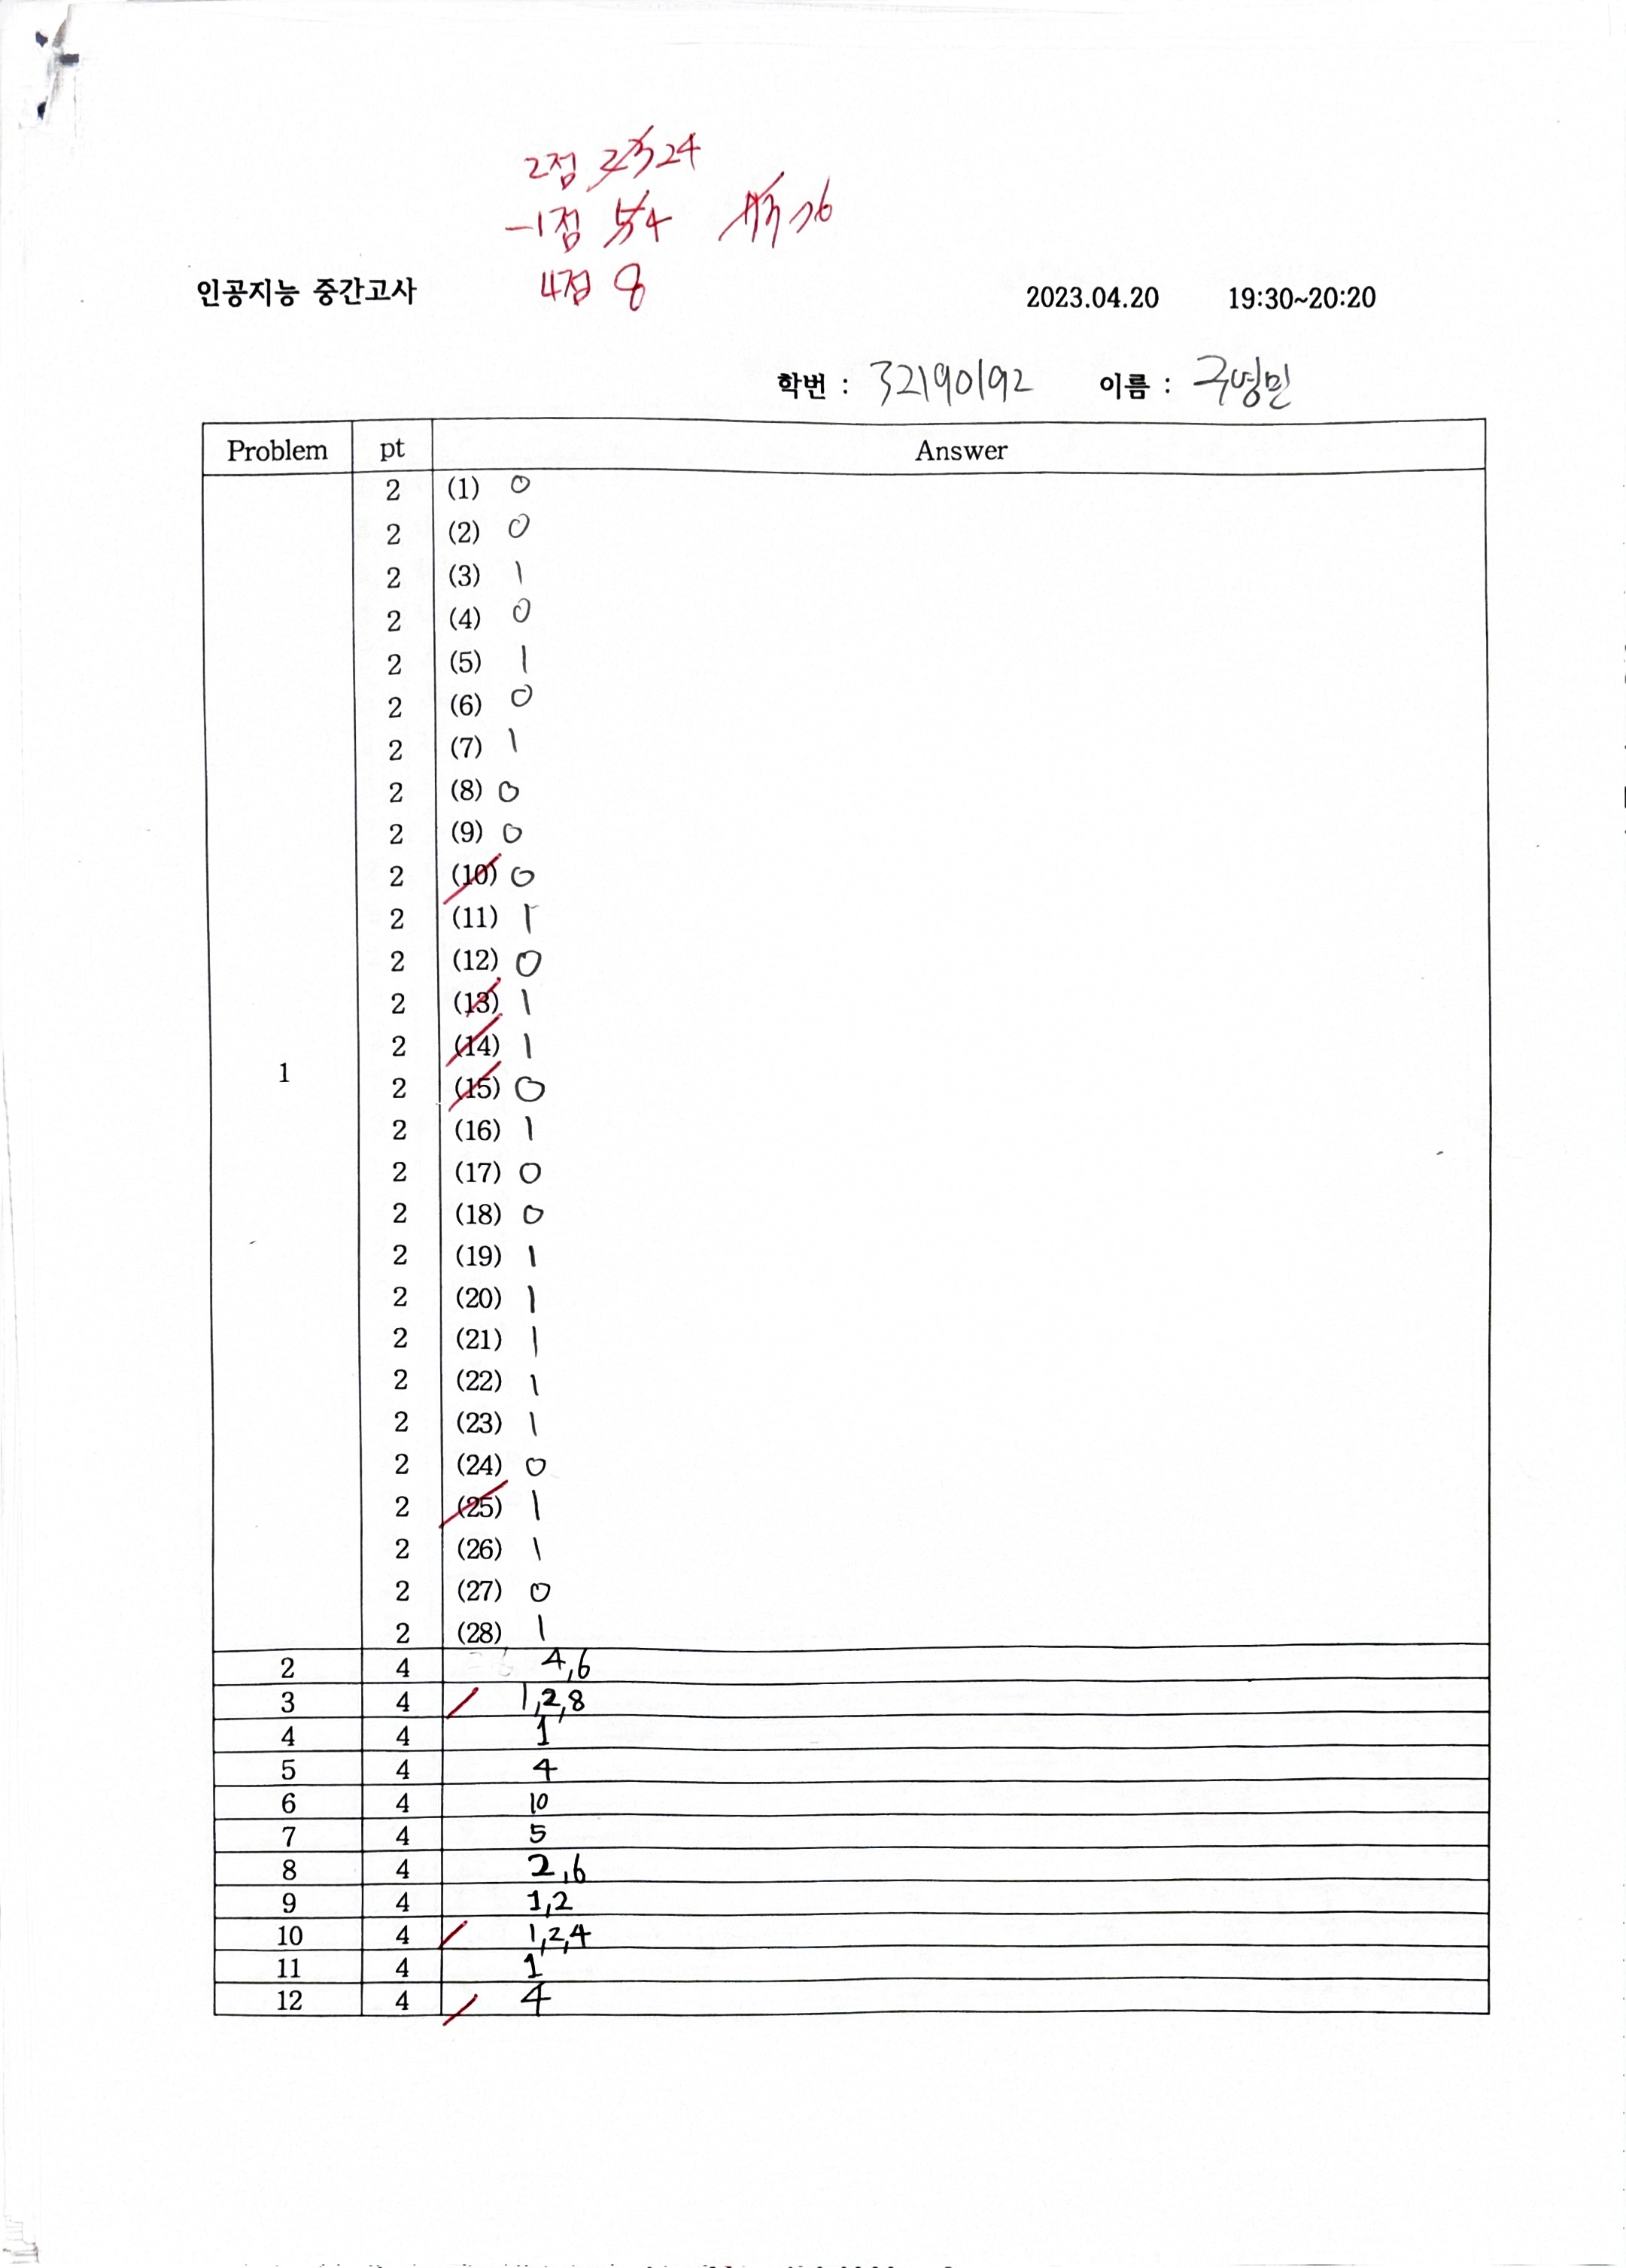 2점 23 24
-1점 5 4 73 76
4점 8
인공지능 중간고사 2023.04.20 19:30~20:20
학번 : 32190192 이름 : 구영민
Problem pt Answer
2 (1) 0
2 (2) 0
2 (3) 1
2 (4) 0
2 (5) 1
2 (6) 0
2 (7) 1
2 (8) 0
2 (9) 0
2 (10) 0
2 (11) 1
2 (12) 0
2 (13) 1
2 (14) 1
1 2 (15) 0
2 (16) 1
2 (17) 0
2 (18) 0
2 (19) 1
2 (20) 1
2 (21) 1
2 (22) 1
2 (23) 1
2 (24) 0
2 (25) 1
2 (26) 1
2 (27) 0
2 (28) 1
2 4 4,6
3 4 1,2,8
4 4 1
5 4 4
6 4 10
7 4 5
8 4 2,6
9 4 1,2
10 4 1,2,4
11 4 1
12 4 4